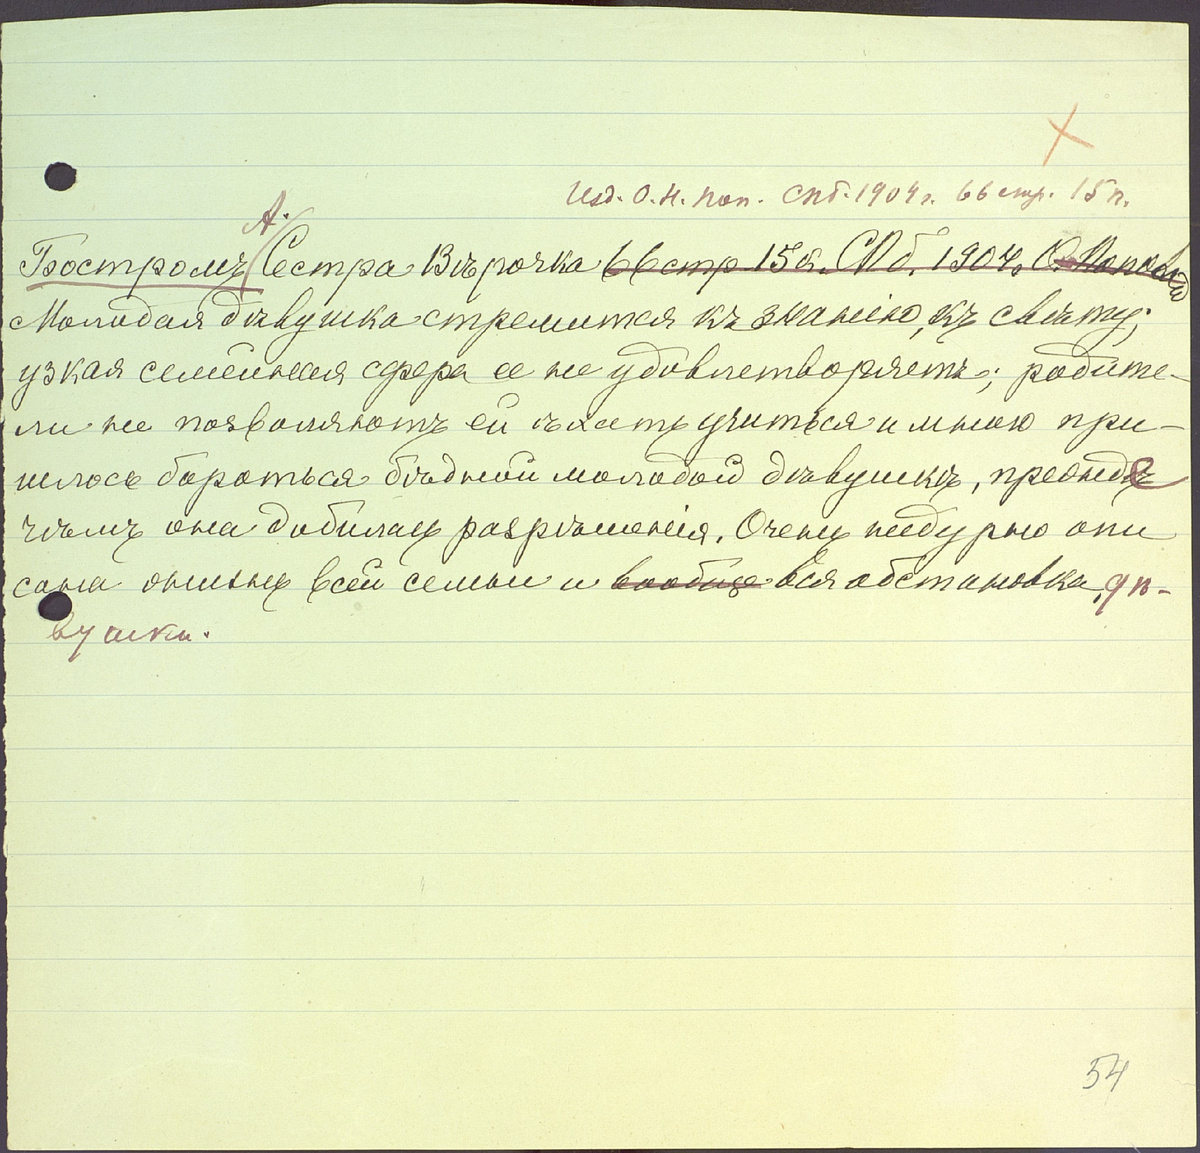 Изд. О. Н. Поп. Спб. 1904 г. 66 стр. 15 к.
А.
Бостромъ Сестра Вѣрочка 66 стр 15 к. СПб. 1904. О. Поповой
Молодая дѣвушка стремится къ знанію, къ свѣту;
узкая семейная сфера ее не удовлетворяетъ; родите-
ли не позволяютъ ей ѣхать учиться и много при-
шлось бороться бѣдной молодой дѣвушкѣ, прежде
чѣмъ она добилась разрѣшенія. Очень недурно опи
сана жизнь всей семьи и вообще вся обстановка дѣ-
вушки.
54